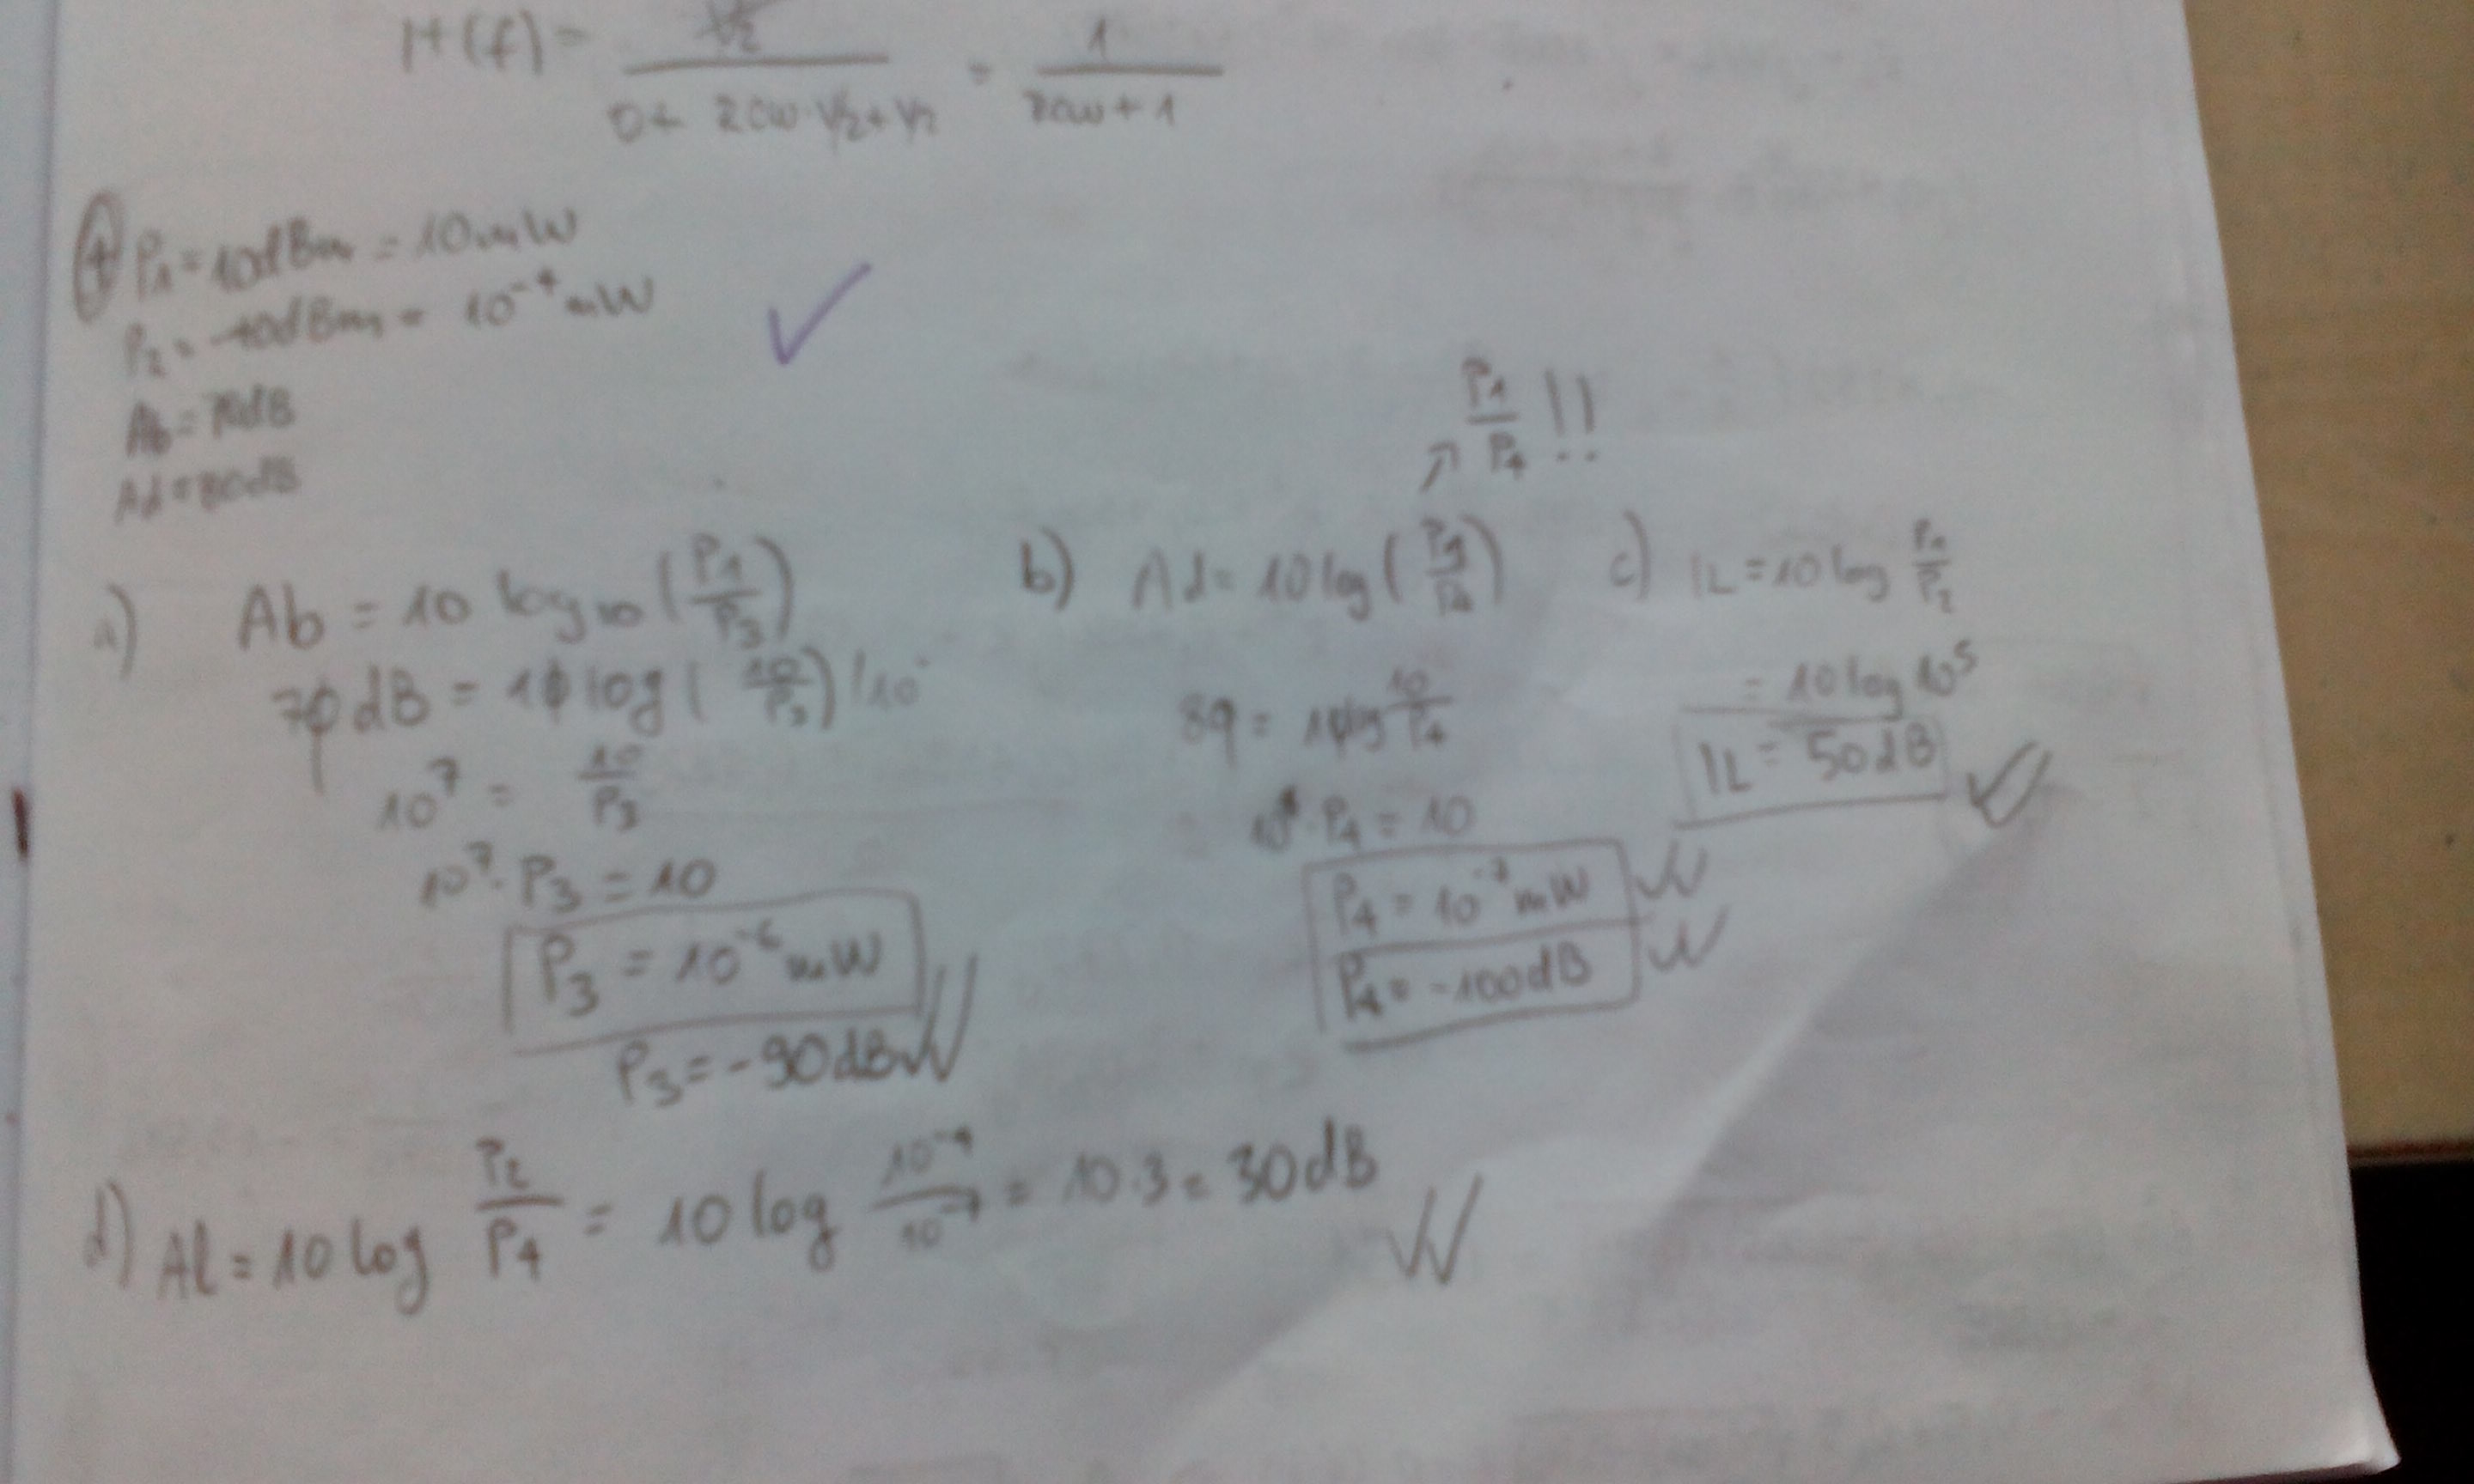 H(f) = 1/2 / (0 + 2cw·1/2 + 1/2) = 1 / (2cw + 1)
④ P1 = 10dBm = 10mW
P2 = -40dBm = 10^-4 mW
Ab = 70dB
Ad = 80dB
P1/P4 !!
a) Ab = 10 log10 (P1/P3)
70dB = 10 log (10/P3) /10
10^7 = 10/P3
10^7 · P3 = 10
P3 = 10^-6 mW
P3 = -90dB
b) Ad = 10 log (P1/P4)
80 = 10 log 10/P4
10^8 · P4 = 10
P4 = 10^-7 mW
P4 = -100dB
c) IL = 10 log P1/P2
= 10 log 10^5
IL = 50dB
d) Al = 10 log P2/P4 = 10 log 10^-4/10^-7 = 10·3 = 30dB